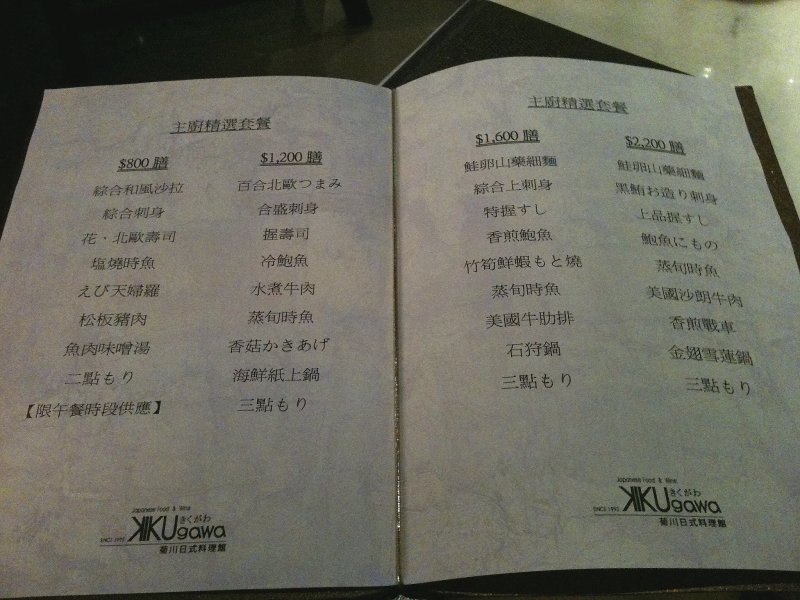 主廚精選套餐
$800 膳
綜合和風沙拉
綜合刺身
花・北歐壽司
塩燒時魚
えび天婦羅
松板豬肉
魚肉味噌湯
二點もり
【限午餐時段供應】
$1,200 膳
百合北歐つまみ
合盛刺身
握壽司
冷鮑魚
水煮牛肉
蒸旬時魚
香菇かきあげ
海鮮紙上鍋
三點もり
Japanese Food & Wine
KIKUgawa
きくがわ
SINCE 1995
菊川日式料理館
主廚精選套餐
$1,600 膳
鮭卵山藥細麵
綜合上刺身
特握すし
香煎鮑魚
竹筍鮮蝦もと燒
蒸旬時魚
美國牛肋排
石狩鍋
三點もり
$2,200 膳
鮭卵山藥細麵
黑鮪お造り刺身
上品握すし
鮑魚にもの
蒸旬時魚
美國沙朗牛肉
香煎戰車
金翅雪蓮鍋
三點もり
Japanese Food & Wine
KIKUgawa
きくがわ
SINCE 1995
菊川日式料理館